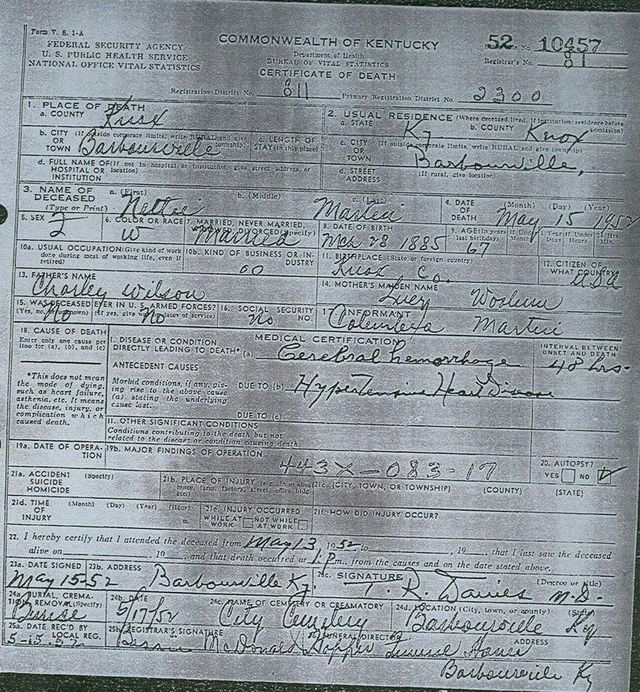 Form V. S. 1-A
FEDERAL SECURITY AGENCY
U. S. PUBLIC HEALTH SERVICE
NATIONAL OFFICE VITAL STATISTICS
COMMONWEALTH OF KENTUCKY
Department of Health
BUREAU OF VITAL STATISTICS
CERTIFICATE OF DEATH
52 10457
Registrar's No. 81
Registration District No. 811 Primary Registration District No. 2300
1. PLACE OF DEATH
a. COUNTY Knox
2. USUAL RESIDENCE (Where deceased lived. If institution: residence before admission)
a. STATE Ky b. COUNTY Knox
b. CITY OR TOWN Barbourville
c. LENGTH OF STAY (in this place)
c. CITY OR TOWN (If outside corporate limits, write RURAL and give township)
Barbourville,
d. FULL NAME OF HOSPITAL OR INSTITUTION (If not in hospital or institution, give street address or location)
d. STREET ADDRESS (If rural, give location)
3. NAME OF DECEASED (Type or Print)
a. (First) b. (Middle) c. (Last)
Nettie Martin
4. DATE OF DEATH (Month) (Day) (Year)
May 15 1952
5. SEX F
6. COLOR OR RACE W
7. MARRIED, NEVER MARRIED, WIDOWED, DIVORCED (Specify) Married
8. DATE OF BIRTH Mch 28 1885
9. AGE (In years last birthday) 67
10a. USUAL OCCUPATION (Give kind of work done during most of working life, even if retired)
10b. KIND OF BUSINESS OR INDUSTRY
11. BIRTHPLACE (State or foreign country) Knox Co.
12. CITIZEN OF WHAT COUNTRY? USA
13. FATHER'S NAME
Charley Wilson
14. MOTHER'S MAIDEN NAME
Lucy
15. WAS DECEASED EVER IN U. S. ARMED FORCES?
(Yes, no, or unknown) (If yes, give war or dates of service)
No No
16. SOCIAL SECURITY NO. No
17. INFORMANT
Martin
18. CAUSE OF DEATH
Enter only one cause per line for (a), (b), and (c)
*This does not mean the mode of dying, such as heart failure, asthenia, etc. It means the disease, injury, or complication which caused death.
MEDICAL CERTIFICATION
I. DISEASE OR CONDITION DIRECTLY LEADING TO DEATH* (a) Cerebral hemorrhage
INTERVAL BETWEEN ONSET AND DEATH
48 hrs-
ANTECEDENT CAUSES
Morbid conditions, if any, giving rise to the above cause (a) stating the underlying cause last.
DUE TO (b) Hypertensive Heart Disease
DUE TO (c)
II. OTHER SIGNIFICANT CONDITIONS
Conditions contributing to the death but not related to the disease or condition causing death.
19a. DATE OF OPERATION
19b. MAJOR FINDINGS OF OPERATION
443X-083-17
20. AUTOPSY?
YES NO
21a. ACCIDENT SUICIDE HOMICIDE (Specify)
21b. PLACE OF INJURY (e.g., in or about home, farm, factory, street, office bldg.
21c. (CITY, TOWN, OR TOWNSHIP) (COUNTY) (STATE)
21d. TIME OF INJURY (Month) (Day) (Year) (Hour)
21e. INJURY OCCURRED
WHILE AT WORK NOT WHILE AT WORK
21f. HOW DID INJURY OCCUR?
22. I hereby certify that I attended the deceased from May 13, 1952 to , 19 , that I last saw the deceased
alive on , 19 , and that death occurred at 1 P m., from the causes and on the date stated above.
23a. DATE SIGNED May 15-52
23b. ADDRESS Barbourville Ky
23c. SIGNATURE (Degree or title)
T. R. Davies M.D.
24a. BURIAL, CREMATION, REMOVAL (Specify)
Burial
24b. DATE 5/17/52
24c. NAME OF CEMETERY OR CREMATORY
City Cemetery
24d. LOCATION (City, town, or county) (State)
Barbourville Ky
25a. DATE REC'D BY LOCAL REG.
5-15-52
25b. REGISTRAR'S SIGNATURE
McDonald
FUNERAL DIRECTOR ADDRESS
Hopper Funeral Home
Barbourville Ky